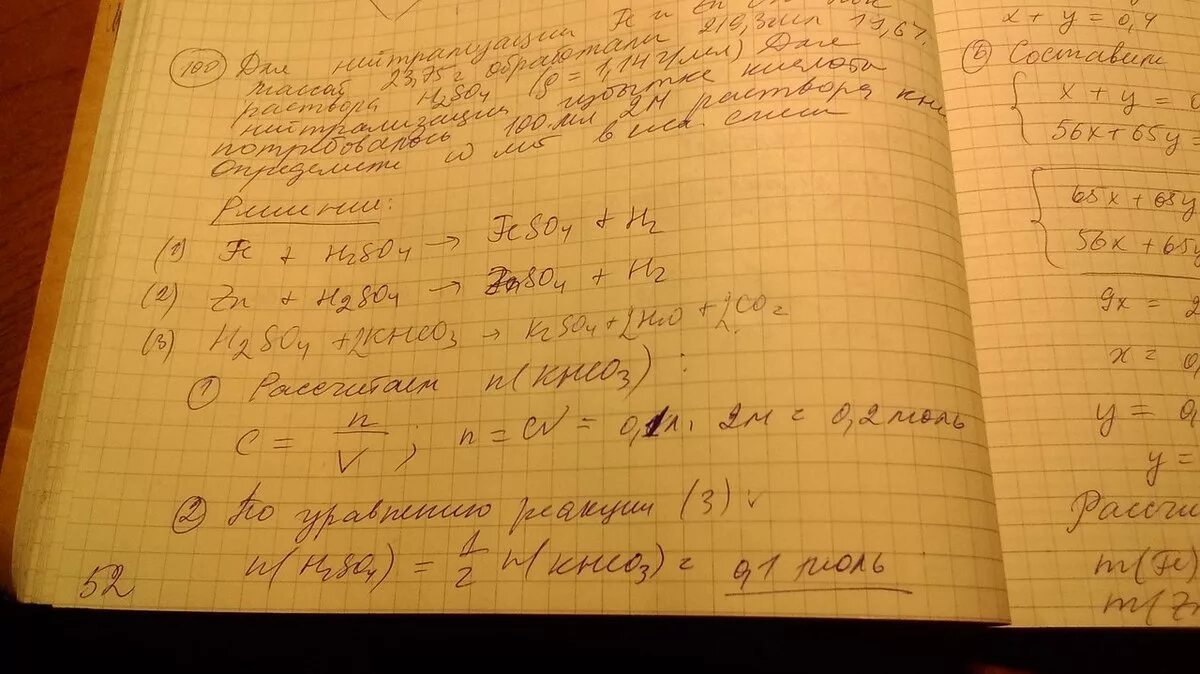 100 Для нейтрализации Fe и Zn
массой 23,75 г обработали 219,3 мл 19,6%
раствора H2SO4 (ρ = 1,14 г/мл) Для
нейтрализации избытка кислоты
потребовалось 100 мл 2М раствора
Определите ω Ме в исх. смеси
Решение:
(1) Fe + H2SO4 → FeSO4 + H2
(2) Zn + H2SO4 → ZnSO4 + H2
(3) H2SO4 + 2KHCO3 → K2SO4 + 2H2O + 2CO2
1 Рассчитаем n(KHCO3):
C = n/V; n = CV = 0,1л. 2М = 0,2 моль
2 По уравнению реакции (3)
n(H2SO4) = 1/2 n(KHCO3) = 0,1 моль
52
x + y = 0,4
6 Составим
x + y =
56x + 65y =
65x + 65y
56x + 65y
9x = 2
x = 0,
y = 0,
y =
m(Fe)